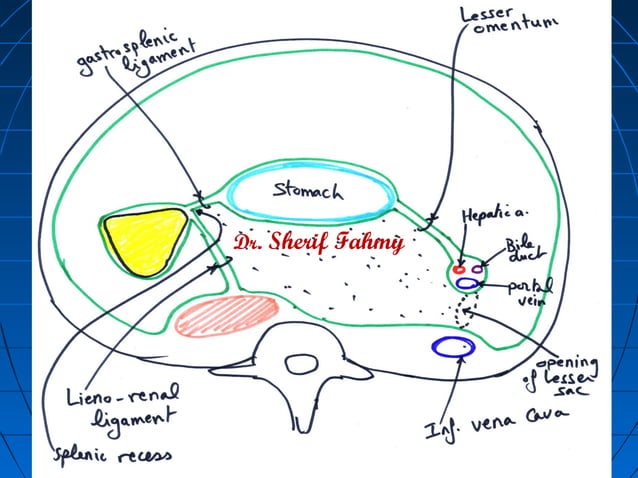 gastrosplenic
ligament
Lesser
omentum
Stomach
Hepatic a.
Bile
duct
portal
vein
Dr. Sherif Fahmy
opening
of Lesser
sac
Inf. vena cava
Lieno-renal
ligament
splenic recess